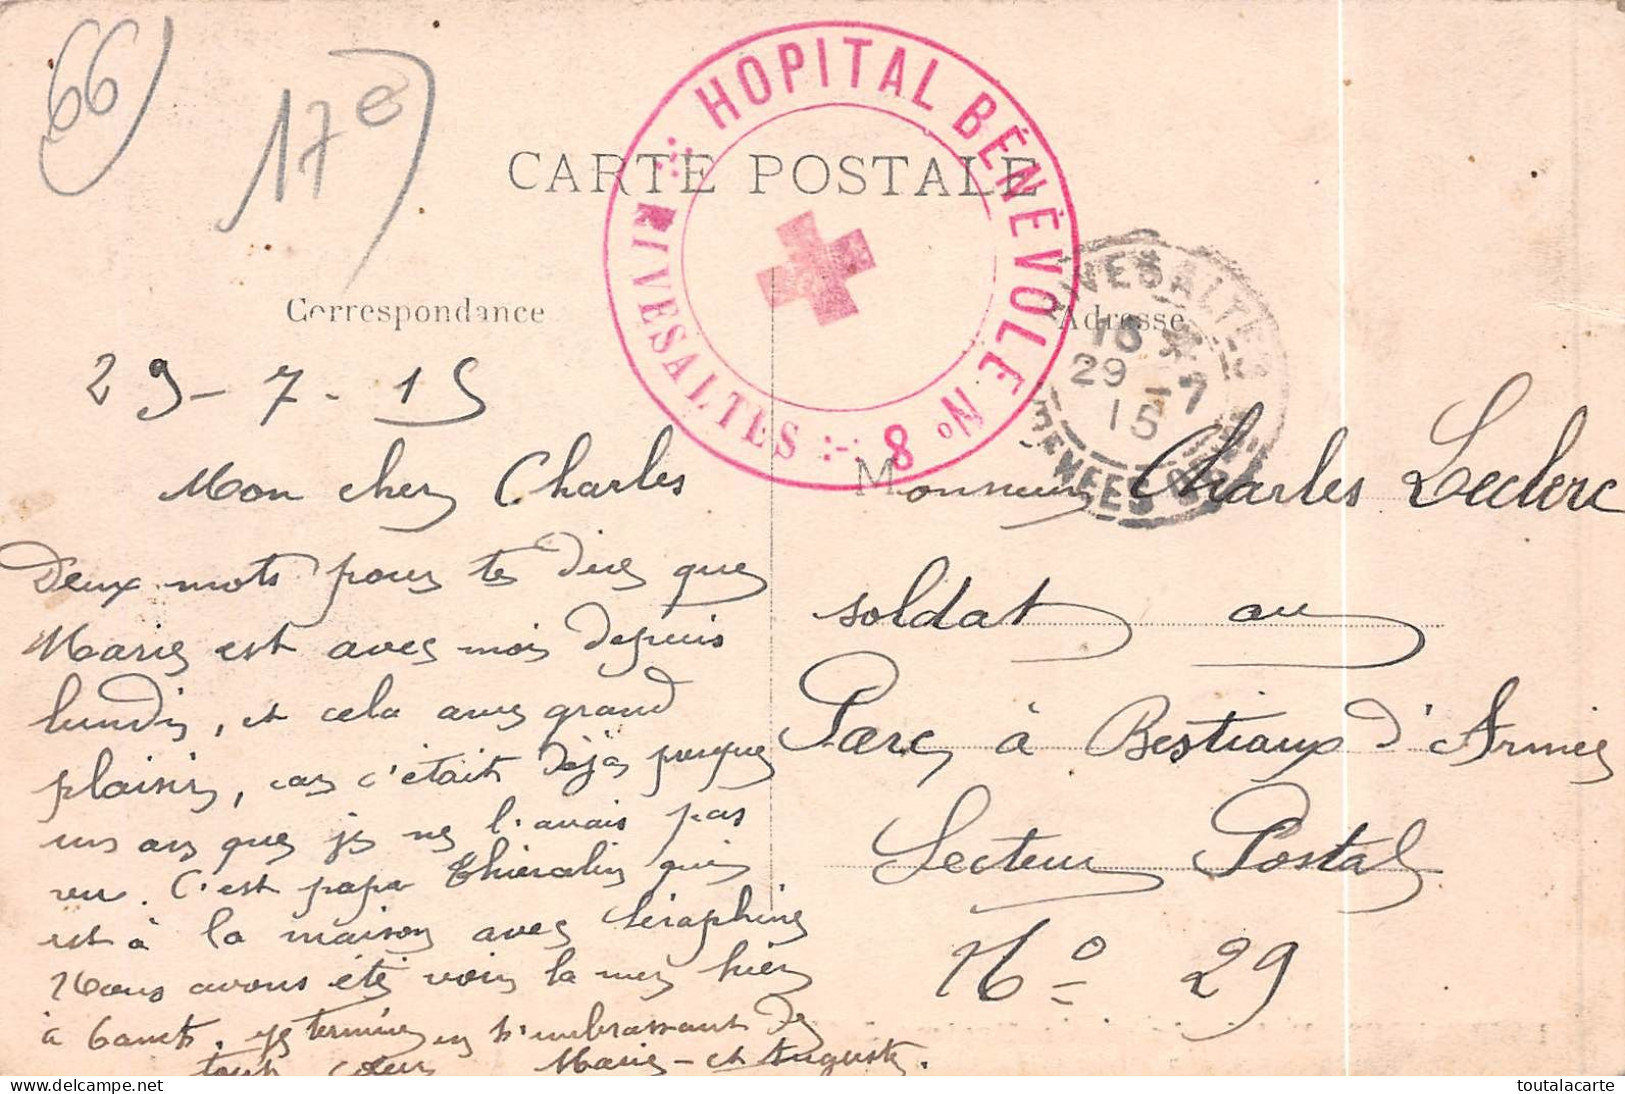 66
17e
HOPITAL BÉNÉVOLE N° 8
RIVESALTES
CARTE POSTALE
Correspondance
Adresse
RIVESALTES
16
29 - 7
15
29-7-15
Mon cher Charles
Deux mots pour te dire que
Marie est avec moi depuis
lundi, et cela avec grand
plaisir, car c'était déjà presque
un an que je ne l'avais pas
vu. C'est papa qui
est à la maison avec Séraphine
Nous avons été voir la mer hier
à Canet. je termine en t'embrassant de
tout cœur Marie et Auguste.
Monsieur Charles Leclerc
soldat au
Parc à Bestiaux d'Armée
Secteur Postal
N° 29
toutalacarte